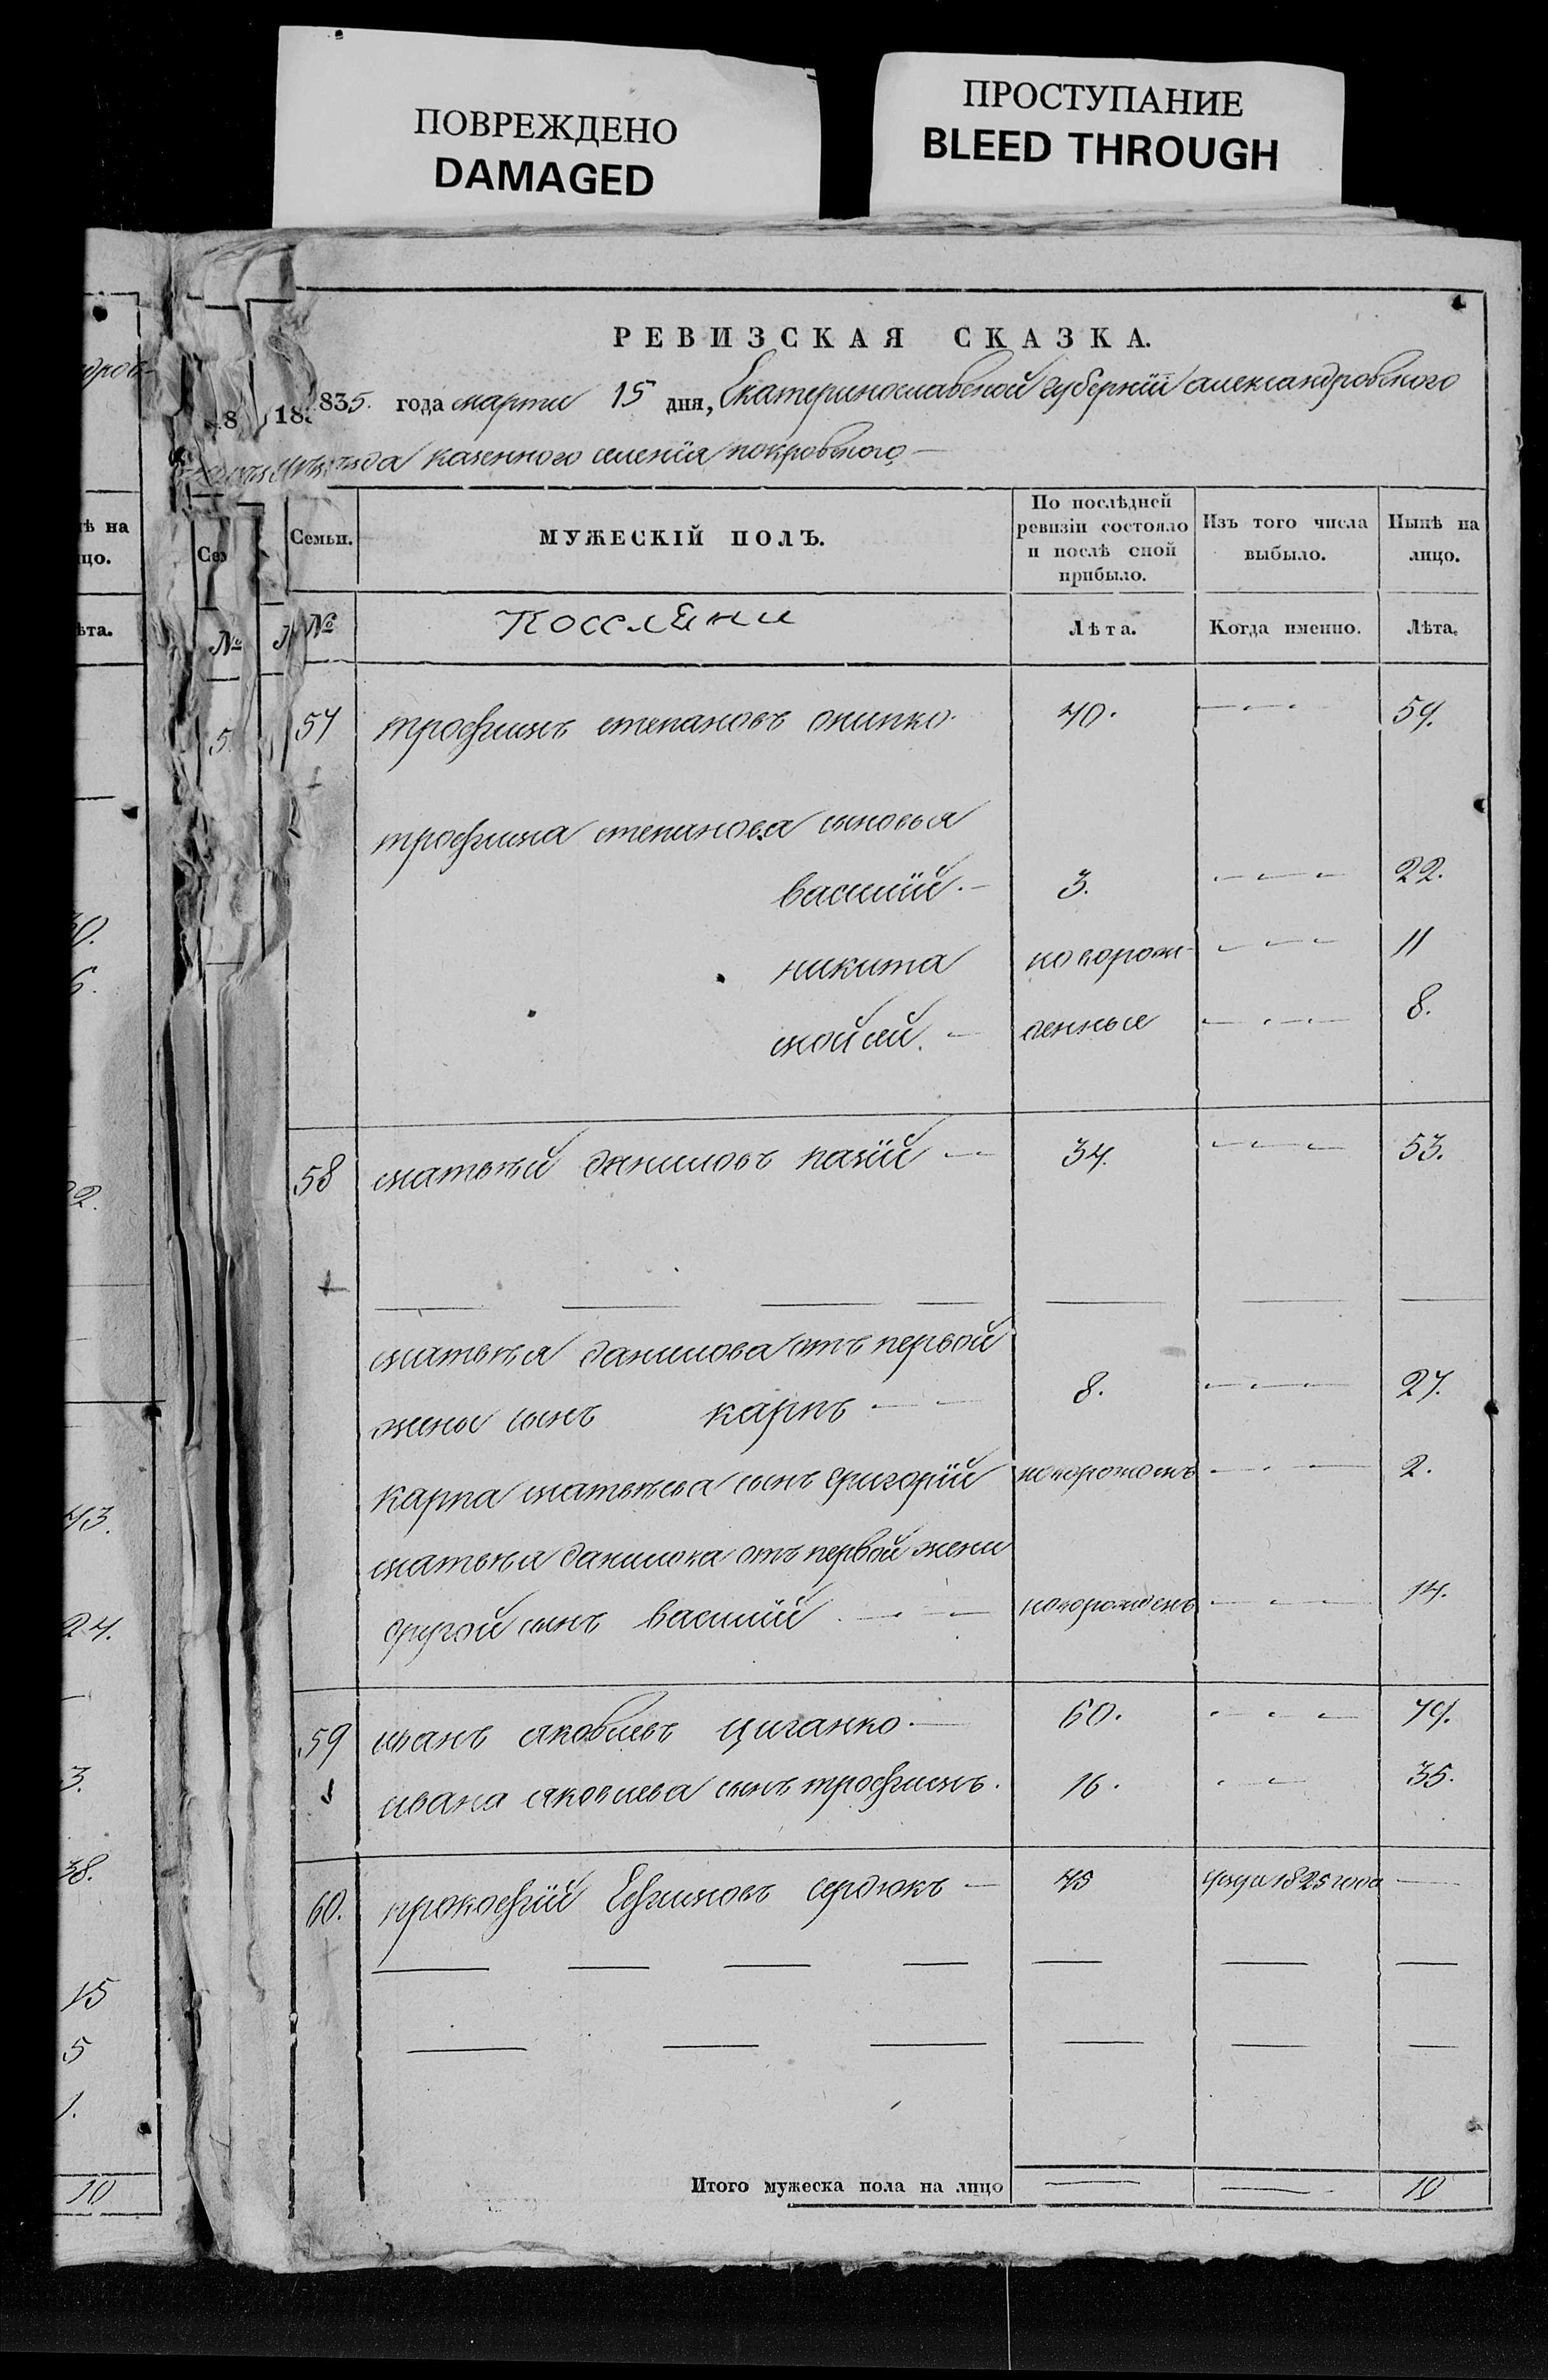 ПОВРЕЖДЕНО
DAMAGED
ПРОСТУПАНИЕ
BLEED THROUGH
РЕВИЗСКАЯ СКАЗКА.
835. года марта 15 дня, Екатеринославской губерніи александровского
уезда казенного селенія покровского
Семьи.
МУЖЕСКІЙ ПОЛЪ.
По послѣдней ревизіи состояло и послѣ сной прибыло.
Изъ того числа выбыло.
Нынѣ на лицо.
№ Лѣта. Когда именно. Лѣта.
57 трофимъ степановъ онипко. 40. 59.
трофима степанова сыновья
василій. 3. 22.
никита новорож- 11
мойсей. денные 8.
58 матвѣй даниловъ 34. 53.
матвѣя данилова отъ первой
жены сынъ карпъ 8. 27.
карпа матвѣева сынъ григорій новорожденъ 2.
матвѣя данилова отъ первой жены
другой сынъ василій новорожденъ 14.
59 иванъ яковлевъ циганко. 60. 79.
ивана яковлева сынъ трофимъ. 16. 35.
60. прокофій Ефимовъ сердюкъ 45 1825 года
Итого мужеска пола на лицо 10